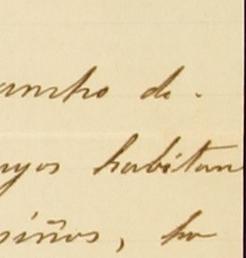 ancho de.
uyos habitan
siños, ha